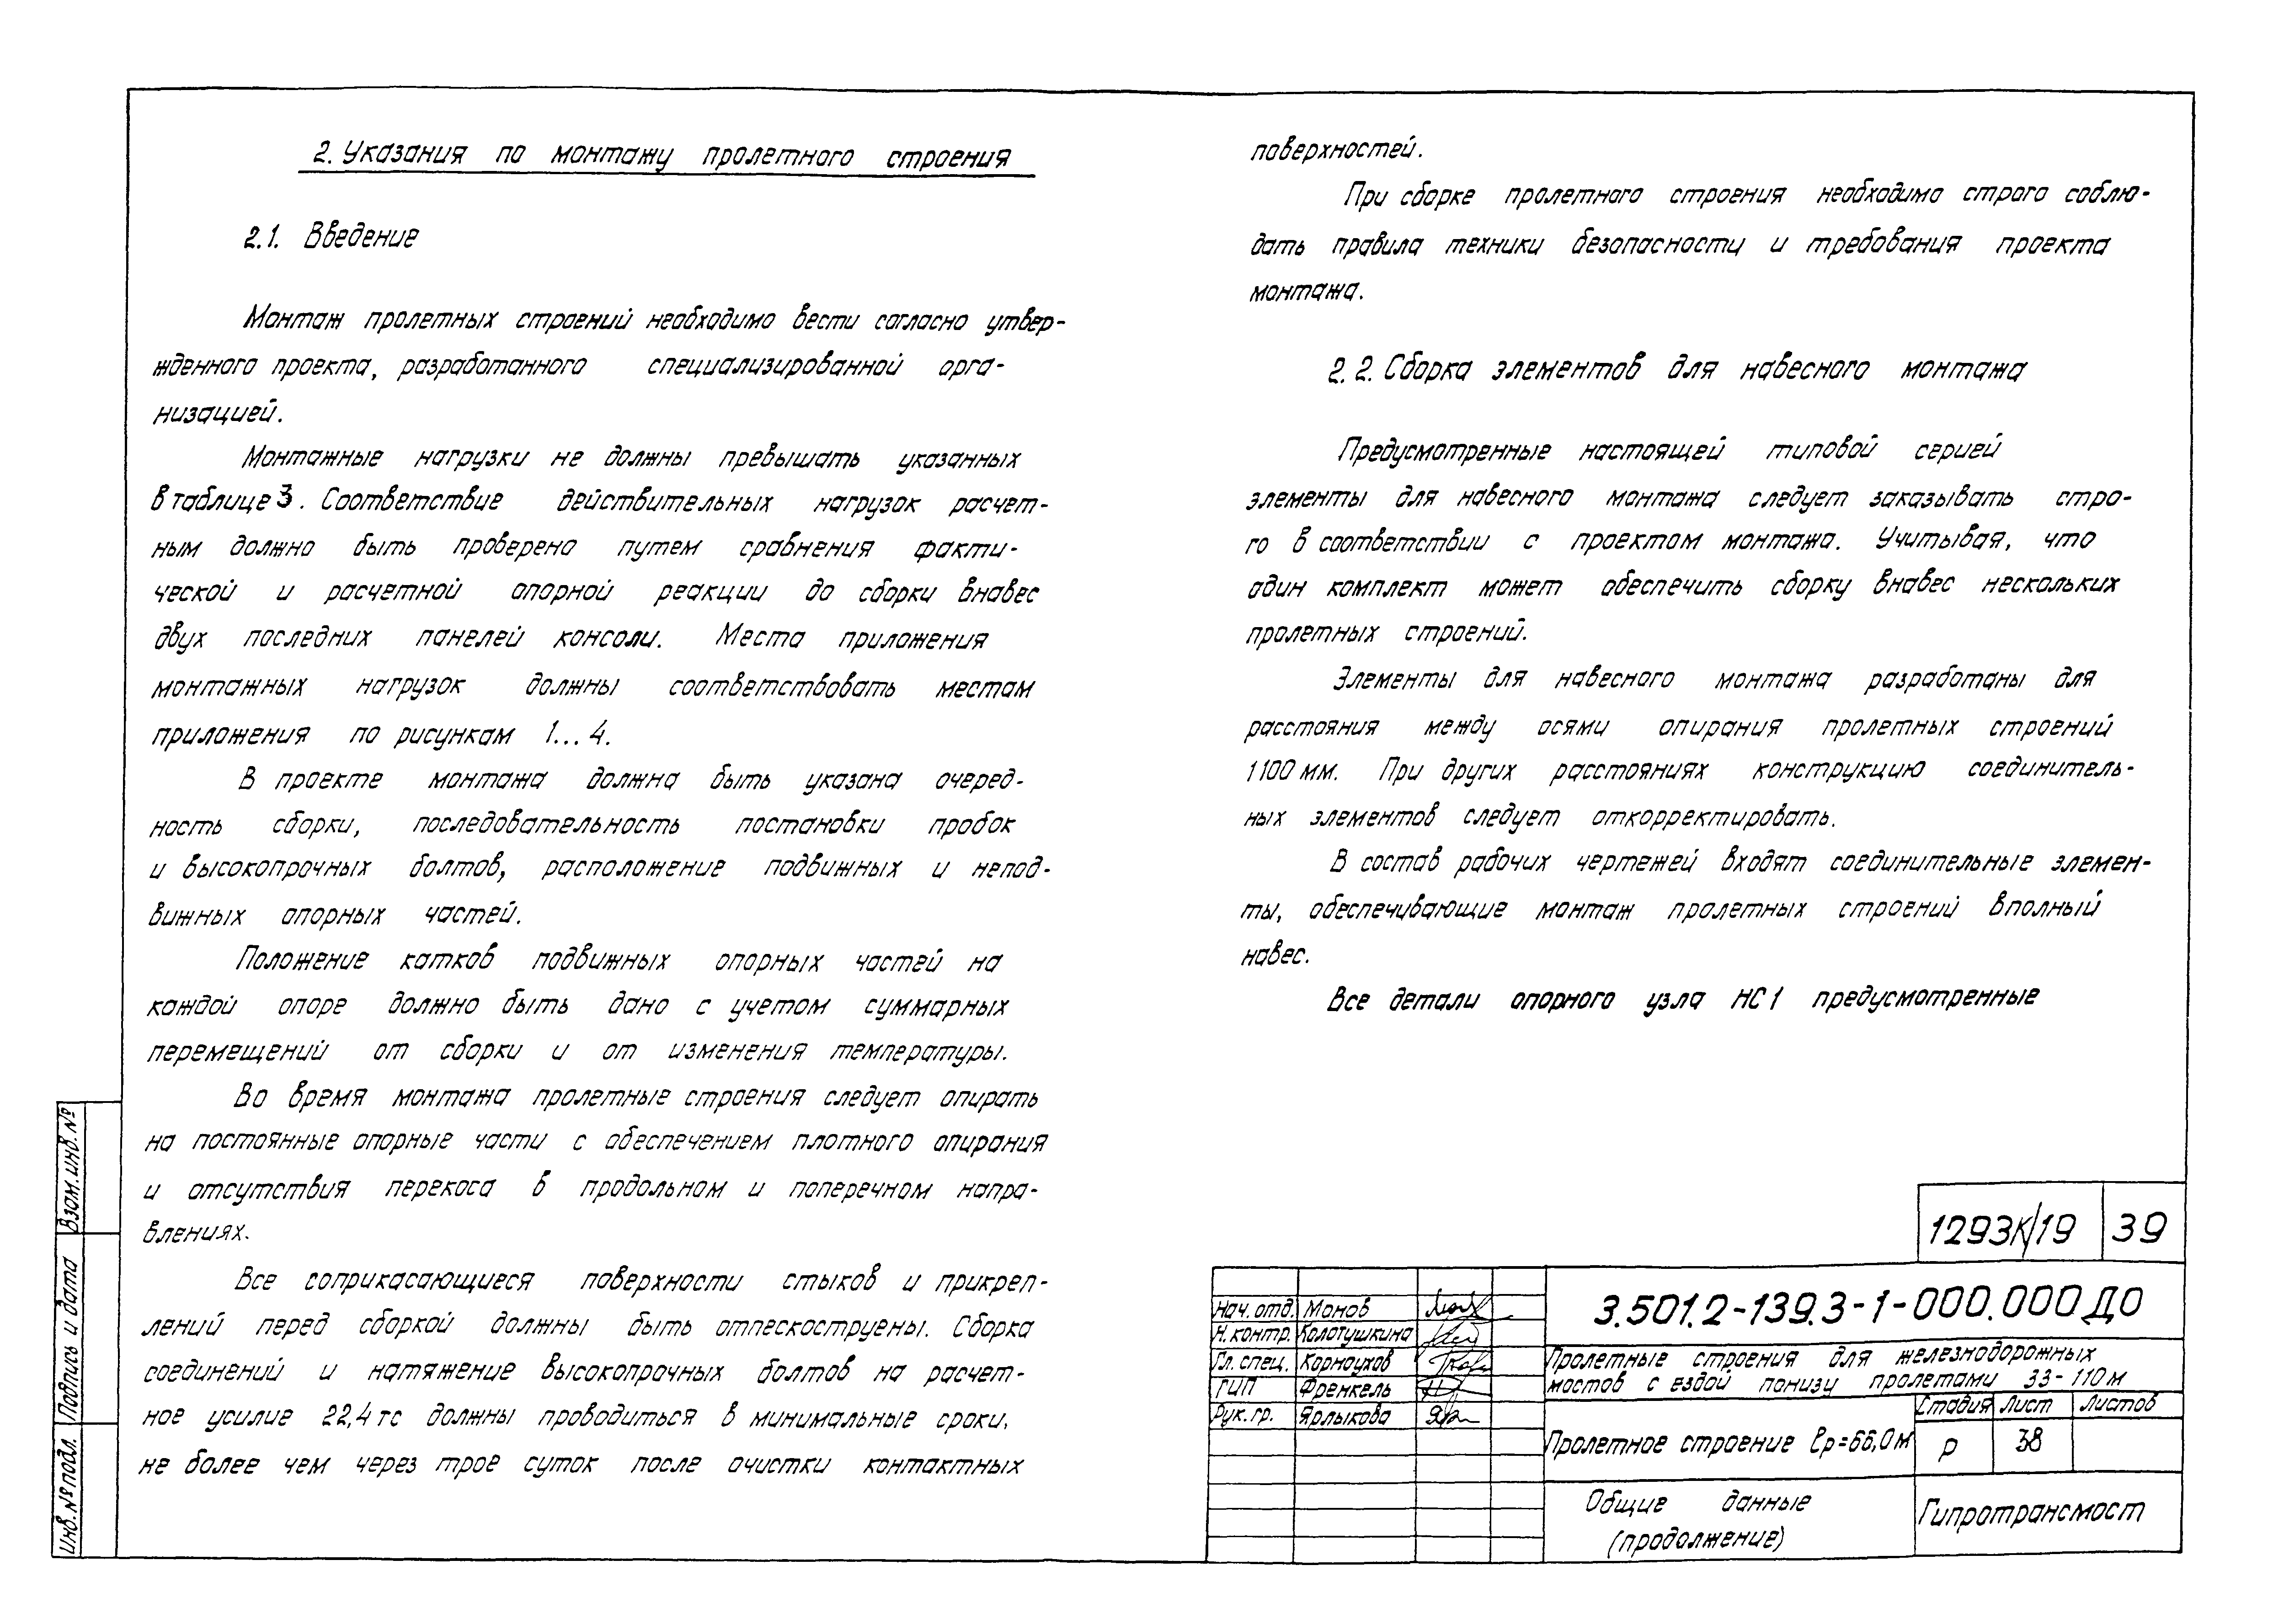 2. Указания по монтажу пролетного строения
2.1. Введение
Монтаж пролетных строений необходимо вести согласно утвер-
жденного проекта, разработанного специализированной орга-
низацией.
Монтажные нагрузки не должны превышать указанных
в таблице 3. Соответствие действительных нагрузок расчет-
ным должно быть проверено путем сравнения факти-
ческой и расчетной опорной реакции до сборки внавес
двух последних панелей консоли. Места приложения
монтажных нагрузок должны соответствовать местам
приложения по рисункам 1...4.
В проекте монтажа должна быть указана очеред-
ность сборки, последовательность постановки пробок
и высокопрочных болтов, расположение подвижных и непод-
вижных опорных частей.
Положение катков подвижных опорных частей на
каждой опоре должно быть дано с учетом суммарных
перемещений от сборки и от изменения температуры.
Во время монтажа пролетные строения следует опирать
на постоянные опорные части с обеспечением плотного опирания
и отсутствия перекоса в продольном и поперечном напра-
влениях.
Все соприкасающиеся поверхности стыков и прикреп-
лений перед сборкой должны быть отпескоструены. Сборка
соединений и натяжение высокопрочных болтов на расчет-
ное усилие 22,4 тс должны проводиться в минимальные сроки,
не более чем через трое суток после очистки контактных
поверхностей.
При сборке пролетного строения необходимо строго соблю-
дать правила техники безопасности и требования проекта
монтажа.
2.2. Сборка элементов для навесного монтажа
Предусмотренные настоящей типовой серией
элементы для навесного монтажа следует заказывать стро-
го в соответствии с проектом монтажа. Учитывая, что
один комплект может обеспечить сборку внавес нескольких
пролетных строений.
Элементы для навесного монтажа разработаны для
расстояния между осями опирания пролетных строений
1100 мм. При других расстояниях конструкцию соединитель-
ных элементов следует откорректировать.
В состав рабочих чертежей входят соединительные элемен-
ты, обеспечивающие монтаж пролетных строений в полный
навес.
Все детали опорного узла НС1 предусмотренные
Взам. инв. №
Подпись и дата
Инв. № подл.
1293К/19 39
3.501.2-139.3-1-000.000 ДО
Нач. отд. Монов
Н. контр. Колотушкина
Гл. спец. Корноухов
ГИП Френкель
Рук. гр. Ярлыкова
Пролетные строения для железнодорожных
мостов с ездой понизу пролетами 33-110 м
Пролетное строение lp=66,0 м
Стадия Лист Листов
Р 38
Общие данные
(продолжение)
Гипротрансмост